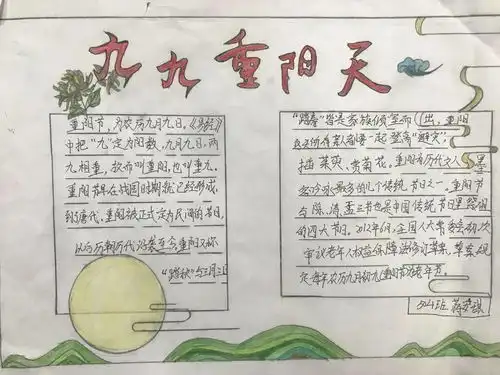 九九重阳天
重阳节，为农历九月九日。《易经》
中把“九”定为阳数，九月九日，两
九相重，故而叫重阳，也叫重九。
重阳节早在战国时期就已经形成，
到了唐代，重阳被正式定为民间的节日，
以后历朝历代沿袭至今。重阳又称
“踏秋”与三月三日
“踏春”皆是家族倾室而出，重阳
这天所有亲人都要一起登高“避灾”，
插茱萸、赏菊花。重阳有历代文人墨
客吟咏最多的几个传统节日之一。重阳节
与除、清、盂三节也是中国传统节日里祭祖
的四大节日。2012年6月，全国人大常委会初次
审议老年人权益保障法修订草案，草案规
定每年农历九月初九重阳节为老年节。